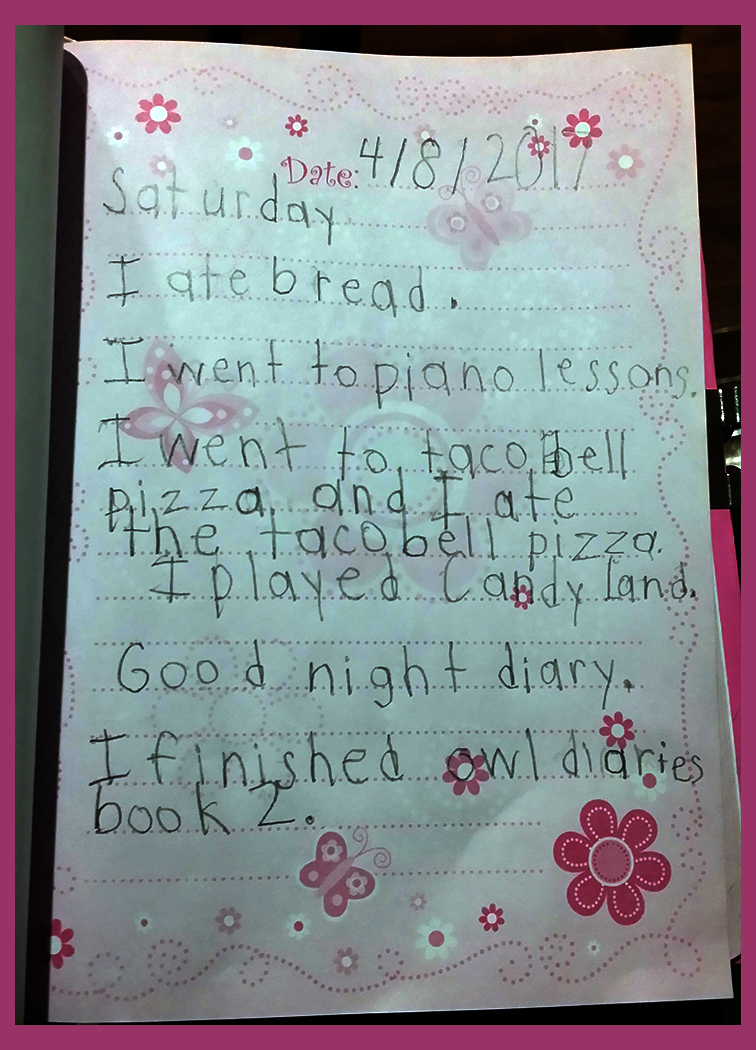 Date: 4/8/2017
Saturday
I ate bread.
I went to piano lessons.
I went to taco bell
pizza and I ate
the taco bell pizza.
I played Candy land.
Good night diary.
I finished owl diaries
book 2.